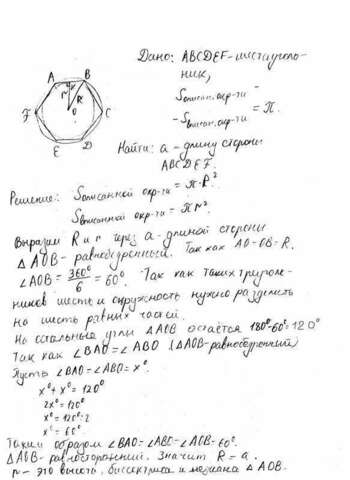 Дано: ABCDEF-шестауголь-
ник,
Sописан. окр-ти -
- Sвписан. окр-ти = π.
Найти: a - длину стороны
ABCDEF.
A B
r R
F O C
E D
Решение: Sописанной окр-ти = π·R²
Sвписанной окр-ти = πr².
Выразим R и r через a-длиной стороны
△AOB-равнобедренный. Так как AO=OB=R.
∠AOB = 360°/6 = 60°. Так как таких треуголь-
ников шесть и окружность нужно разделить
на шесть равных частей.
На остальные углы △AOB остаётся 180°-60°=120°
Так как ∠BAO=∠ABO (△AOB-равнобедренный)
Пусть ∠BAO=∠ABO=x°
x°+x°=120°
2x°=120°
x°=120°:2
x°=60°
Таким образом ∠BAO=∠ABO=∠AOB=60°.
△AOB-равносторонний. Значит R=a.
r - это высота, биссектриса и медиана △AOB.